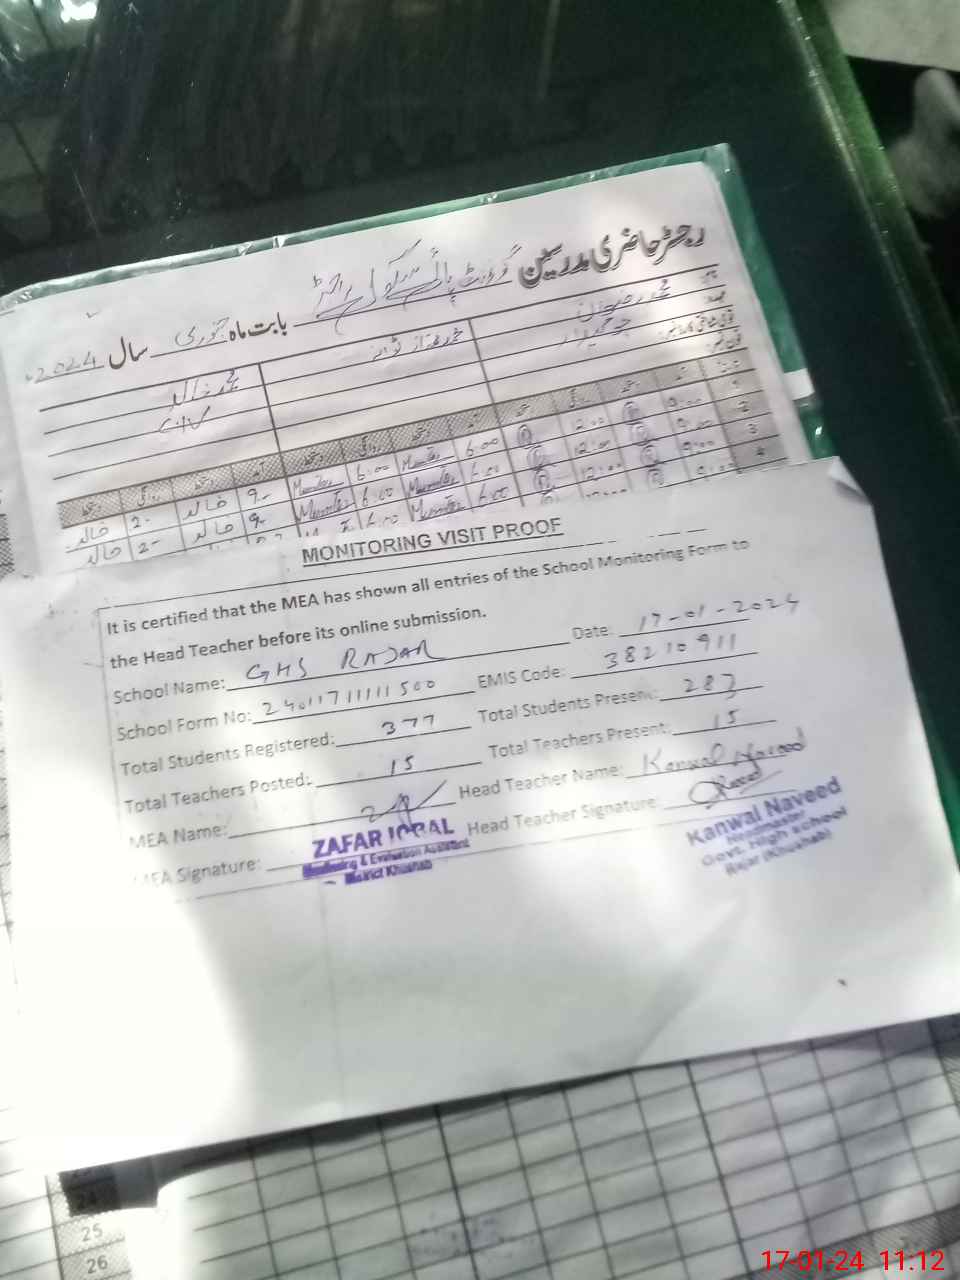 رجسٹر حاضری مدرسین گورنمنٹ ہائی سکول راجڑ
بابت ماہ جنوری سال 2024ء
محمد خالد
خالد 2- خالد 9- Mumtaz 6:00 Mumtaz 6:00 12:00 9:00 1
خالد 2- خالد 9- Mumtaz 6:00 Mumtaz 6:00 12:00 9:00 2
6:00 Mumtaz 6:00 12:00 9:00 3
4
MONITORING VISIT PROOF
It is certified that the MEA has shown all entries of the School Monitoring Form to
the Head Teacher before its online submission.
School Name: GHS RAJAR Date: 17-01-2024
School Form No: 24011711111500 EMIS Code: 38210911
Total Students Registered: 377 Total Students Present: 283
Total Teachers Posted: 15 Total Teachers Present: 15
MEA Name: Head Teacher Name: Kanwal Naveed
MEA Signature: Head Teacher Signature:
ZAFAR IQBAL
Monitoring & Evaluation Assistant
District Khushab
Kanwal Naveed
Headmaster
Govt. High School
Rajar (Khushab)
24
25
26
17-01-24 11:12